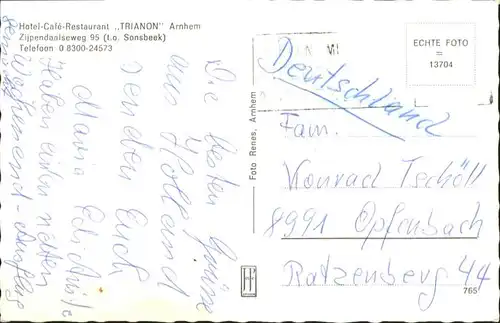 Hotel-Café-Restaurant „TRIANON" Arnhem
Zijpendaalseweg 95 (t.o. Sonsbeek)
Telefoon 0 8300-24573
Die besten Grüße
aus Holland
senden Euch
Mama
Haben einen netten
Wochenend-Ausflug
Foto Renes, Arnhem
ECHTE FOTO
=
13704
Deutschland
Fam.
Konrad Tschöll
8991 Opfenbach
Ratzenberg 44
765